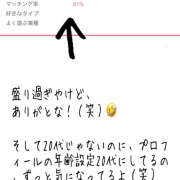 マッチング率 81%
好きなタイプ
よく遊ぶ業種
盛り過ぎやけど、
ありがとな！(笑)🤣
そして20代じゃないのに、プロフ
ィールの年齢設定20代にしてるの
、ずっと気になってるよ(笑)